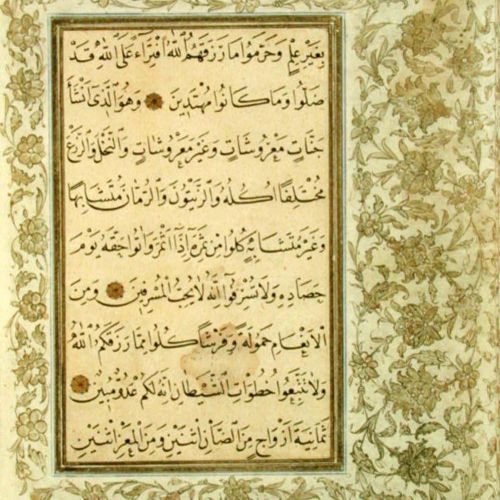 بِغَيْرِ عِلْمٍ وَحَرَّمُوا مَا رَزَقَهُمُ اللَّهُ افْتِرَاءً عَلَى اللَّهِ قَدْ
ضَلُّوا وَمَا كَانُوا مُهْتَدِينَ وَهُوَ الَّذِي أَنْشَأَ
جَنَّاتٍ مَعْرُوشَاتٍ وَغَيْرَ مَعْرُوشَاتٍ وَالنَّخْلَ وَالزَّرْعَ
مُخْتَلِفًا أُكُلُهُ وَالزَّيْتُونَ وَالرُّمَّانَ مُتَشَابِهًا
وَغَيْرَ مُتَشَابِهٍ كُلُوا مِنْ ثَمَرِهِ إِذَا أَثْمَرَ وَآتُوا حَقَّهُ يَوْمَ
حَصَادِهِ وَلَا تُسْرِفُوا إِنَّهُ لَا يُحِبُّ الْمُسْرِفِينَ وَمِنَ
الْأَنْعَامِ حَمُولَةً وَفَرْشًا كُلُوا مِمَّا رَزَقَكُمُ اللَّهُ
وَلَا تَتَّبِعُوا خُطُوَاتِ الشَّيْطَانِ إِنَّهُ لَكُمْ عَدُوٌّ مُبِينٌ
ثَمَانِيَةَ أَزْوَاجٍ مِنَ الضَّأْنِ اثْنَيْنِ وَمِنَ الْمَعْزِ اثْنَيْنِ